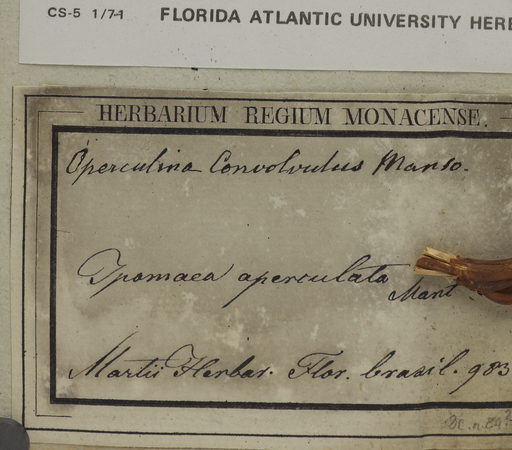 CS-5 1/71 FLORIDA ATLANTIC UNIVERSITY HERB
HERBARIUM REGIUM MONACENSE.
Operculina Convolvulus Manso.
Ipomaea aperculata
Mart
Martii Herbar. Flor. brasil. 983